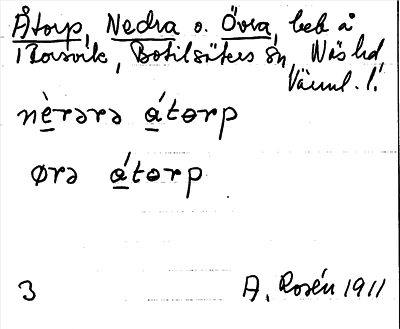 Åtorp, Nedra o. Övra, beb å
Norsvik, Botilsäters sn, Näs hd,
Värml. l.
nèrərə átorp
ørə átorp
3 A. Rosén 1911